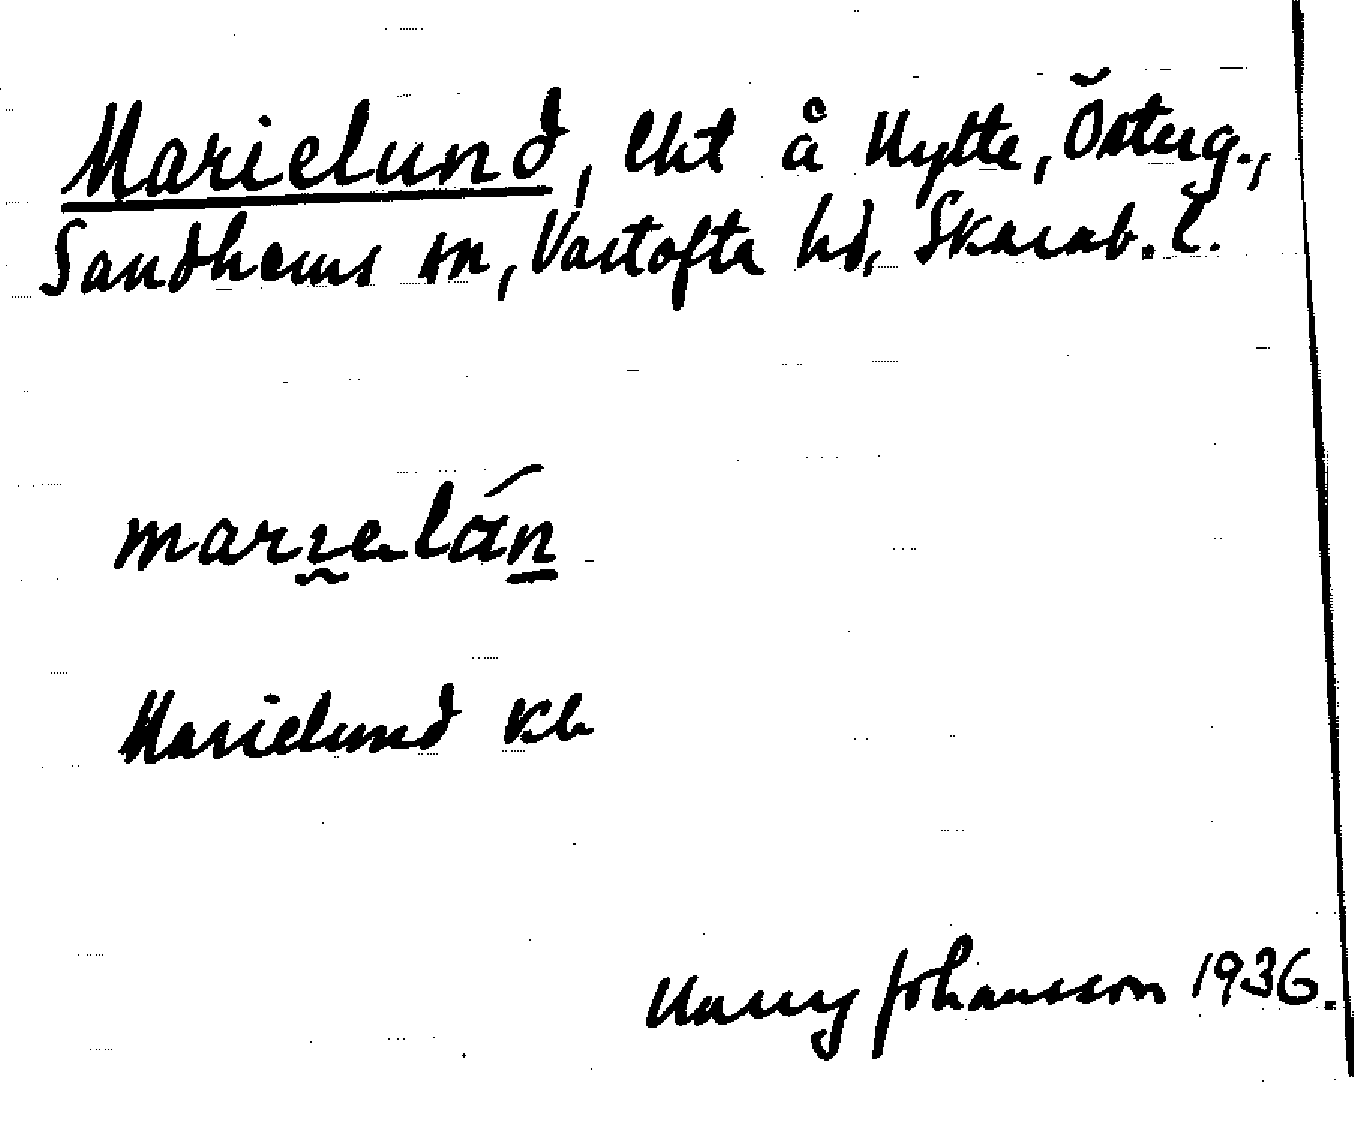 Marielund, lht å Hytte, Österg.,
Sandhems sn, Vartofta hd, Skarab. l.
marıelán
Marielund kb
Harry Johansson 1936.